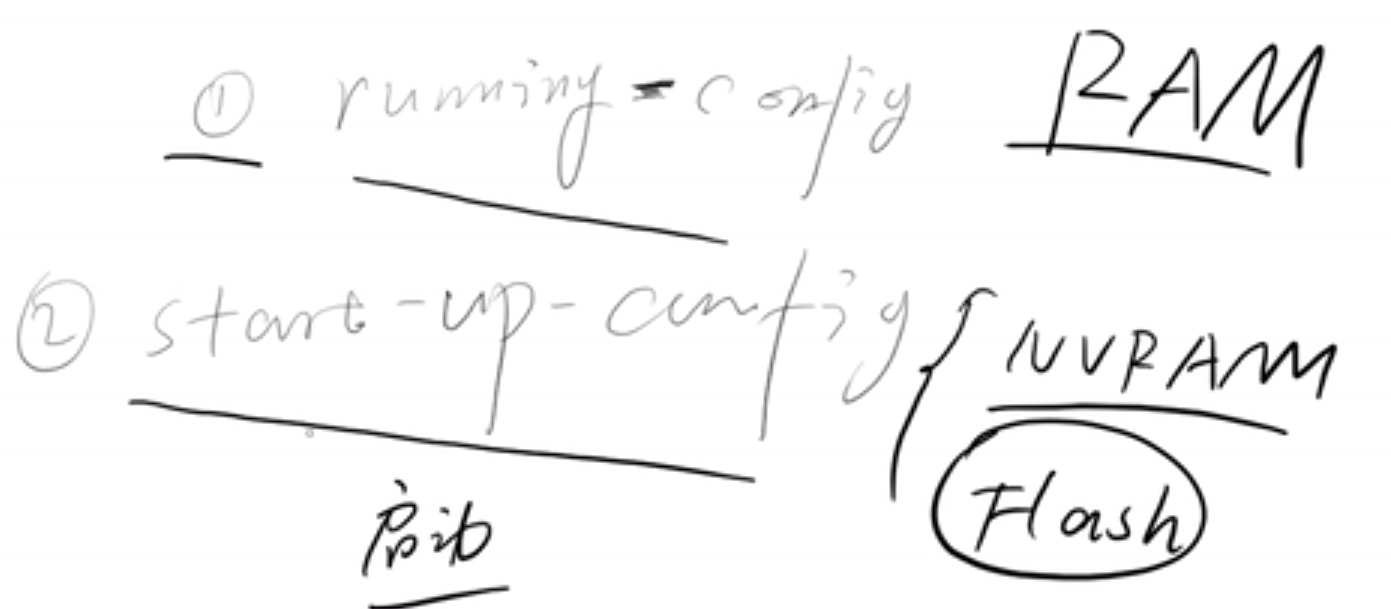 ① running-config RAM
② start-up-config { NVRAM
Flash
启动